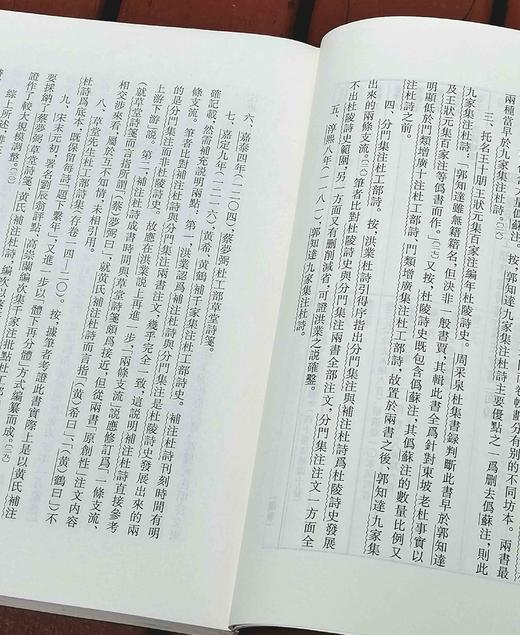 兩種當早於九家集注杜詩。
分有別的不同坊本。兩書最
三、托名王十朋王狀元集百家注編年杜陵詩史。周采泉杜集書録判斷此書早於郭知達
九家集注杜詩:「郭知達雖無籍籍名,但決非一般書賈,其輯此書全爲針對東坡老杜事實以
及王狀元集百家注等僞書而作。」又按,杜陵詩史既包含僞蘇注,其僞蘇注的數量比例又
明顯低於門類增廣十注杜工部詩、門類增廣集注杜詩,故置於兩書之後、郭知達九家集
注杜詩之前。
四、分門集注杜工部詩。按,洪業杜詩引得序指出分門集注與補注杜詩爲杜陵詩史發展
出來的兩條支流。筆者比對杜陵詩史與分門集注兩書全部注文,分門集注注文一方面全
不出杜陵詩史範圍,另一方面又有删削減省,可證洪業之説確鑿。
五、淳熙八年(一一八一),郭知達九家集注杜詩。
六、嘉泰四年(一二〇四),蔡夢弼杜工部草堂詩箋。
七、嘉定九年(一二一六),黄希、黄鶴補千家集注杜工部詩史。補注杜詩刊刻時間有明
確記載,然需補充説明兩點:第一,洪業認爲補注杜詩與分門集注是杜陵詩史發展出來的兩
條支流。筆者比對補注杜詩與分門集注兩書注文,幾乎完全一致,這説明補注杜詩直接參考
的是分門集注而非杜陵詩史,故應在洪業説上再進一步,「兩條支流」説應修訂爲「一條支流、
上游下游」説。第二,補注杜詩成書時間與草堂詩箋頗爲接近,但從兩書「原創性」注文内容
(就草堂詩箋而言指所謂「(蔡)夢弼曰」,就黄氏補注杜詩而言指「(黄)希曰」「(黄)鶴曰」)不
相交涉來看,屬於互不知情、未相引用。
八、草堂先生杜工部詩集(存卷一四—二〇)。按,據筆者考證此書實際上是以黄氏補注
杜詩爲底本,既保留每詩「題下繫年」,又進一步以「一體下再分體」方式編纂而成。
九、宋末元初,署名劉辰翁評點、高崇蘭編次集千家注批點杜工部
要採納了蔡夢弼草堂詩箋、黄氏補注杜詩,編次以
證作了較大規模調整。
綜上所述,